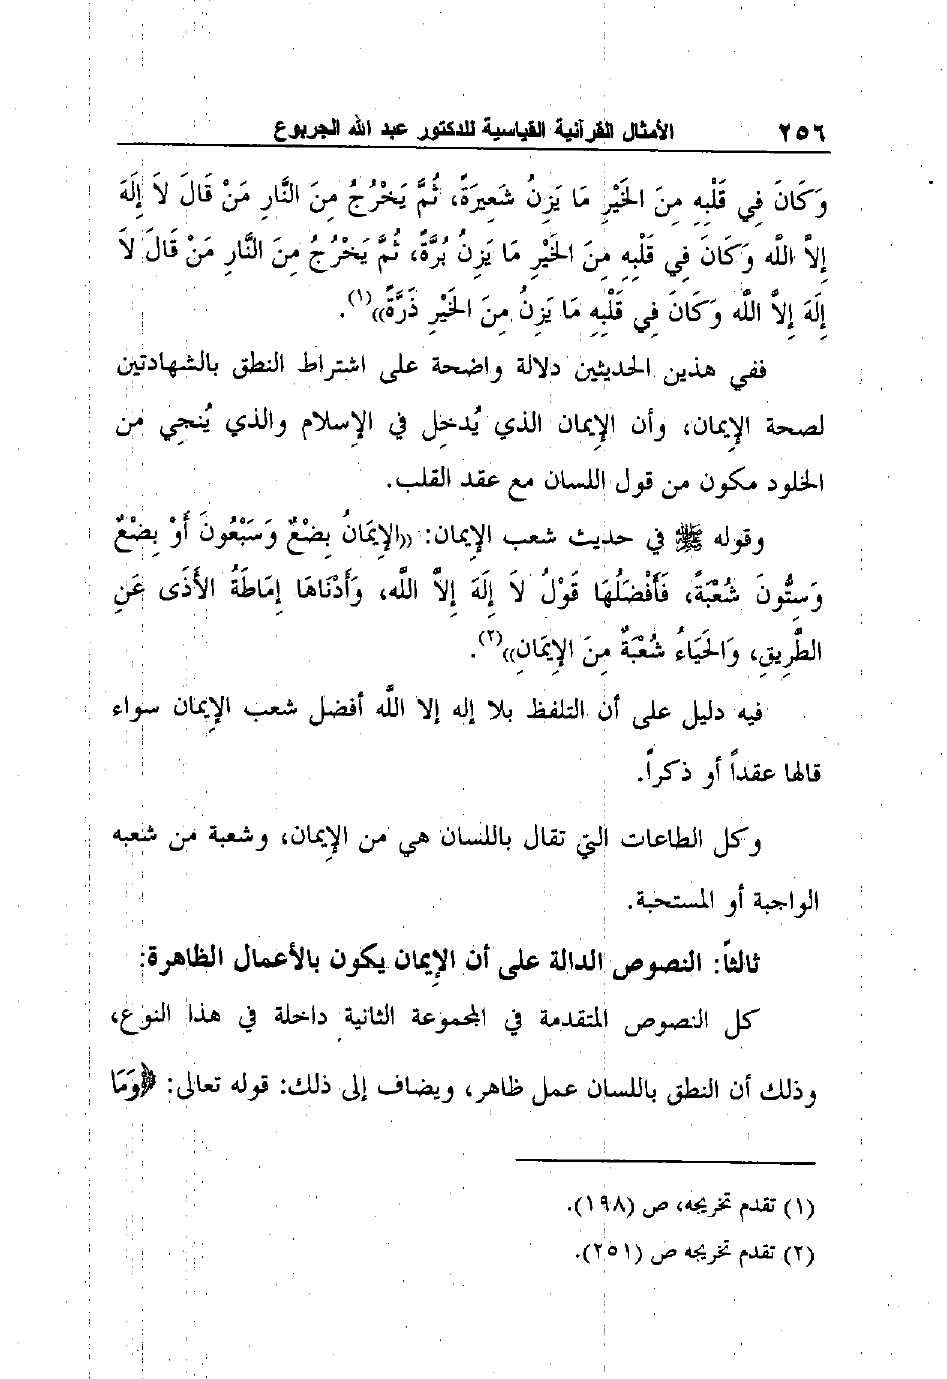 ٢٥٦ الأمثال القرآنية القياسية للدكتور عبد الله الجربوع
وَكَانَ فِي قَلْبِهِ مِنَ الخَيْرِ مَا يَزِنُ شَعِيرَةً، ثُمَّ يَخْرُجُ مِنَ النَّارِ مَنْ قَالَ لاَ إِلَهَ
إِلاَّ اللَّه وَكَانَ فِي قَلْبِهِ مِنَ الخَيْرِ مَا يَزِنُ بُرَّةً، ثُمَّ يَخْرُجُ مِنَ النَّارِ مَنْ قَالَ لاَ
إِلَهَ إِلاَّ اللَّه وَكَانَ فِي قَلْبِهِ مَا يَزِنُ مِنَ الخَيْرِ ذَرَّةً))(١).
ففي هذين الحديثين دلالة واضحة على اشتراط النطق بالشهادتين
لصحة الإِيمان، وأن الإِيمان الذي يُدخِل في الإِسلام والذي يُنجي من
الخلود مكون من قول اللسان مع عقد القلب.
وقوله ﷺ في حديث شعب الإِيمان: ((الإِيَمانُ بِضْعٌ وَسَبْعُونَ أَوْ بِضْعٌ
وَسِتُّونَ شُعْبَةً، فَأَفْضَلُهَا قَوْلُ لاَ إِلَهَ إِلاَّ اللَّه، وَأَدْنَاهَا إِمَاطَةُ الأَذَى عَنِ
الطَّرِيقِ، وَالحَيَاءُ شُعْبَةٌ مِنَ الإِيَمانِ))(٢).
فيه دليل على أن التلفظ بلا إله إلا اللَّه أفضل شعب الإِيمان سواء
قالها عقداً أو ذكراً.
وكل الطاعات التي تقال باللسان هي من الإِيمان، وشعبة من شعبه
الواجبة أو المستحبة.
ثالثاً: النصوص الدالة على أن الإِيمان يكون بالأعمال الظاهرة:
كل النصوص المتقدمة في المجموعة الثانية داخلة في هذا النوع،
وذلك أن النطق باللسان عمل ظاهر، ويضاف إلى ذلك: قوله تعالى: ﴿وَمَا
(١) تقدم تخريجه، ص (١٩٨).
(٢) تقدم تخريجه ص (٢٥١).